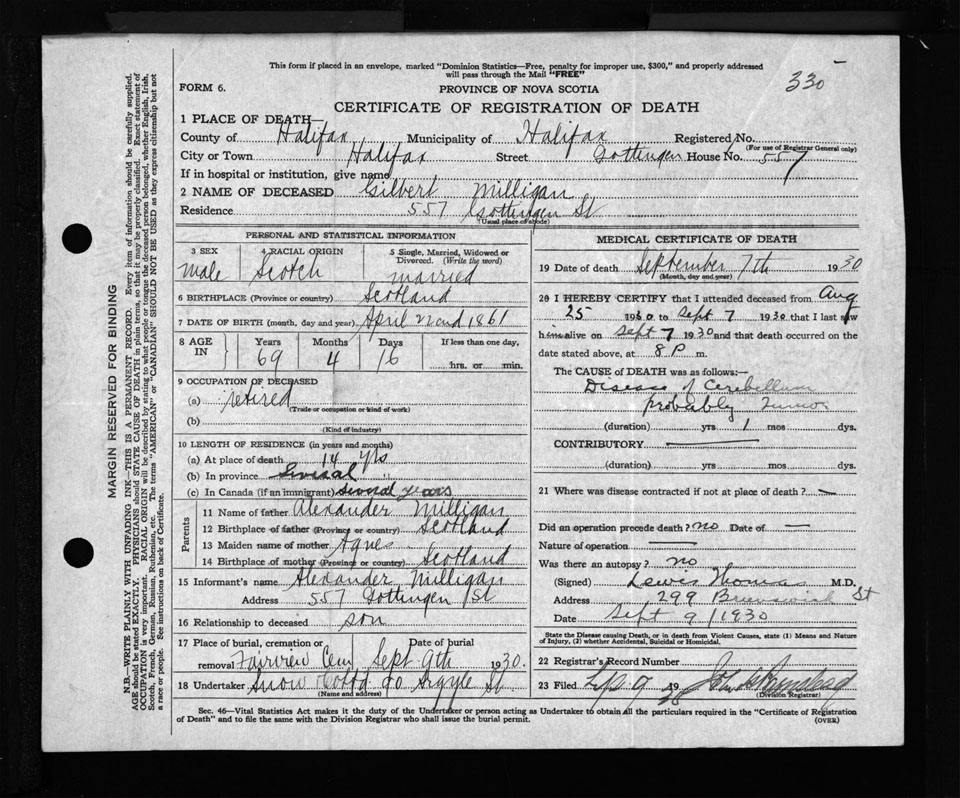 This form if placed in an envelope, marked "Dominion Statistics—Free, penalty for improper use, $300," and properly addressed
will pass through the Mail "FREE"
330
FORM 6.
PROVINCE OF NOVA SCOTIA
CERTIFICATE OF REGISTRATION OF DEATH
1 PLACE OF DEATH—
County of Halifax Municipality of Halifax Registered No.
(For use of Registrar General only)
City or Town Halifax Street Gottingen House No. 557
If in hospital or institution, give name
2 NAME OF DECEASED Gilbert Milligan
Residence 557 Gottingen St
(Usual place of abode)
PERSONAL AND STATISTICAL INFORMATION
3 SEX 4 RACIAL ORIGIN 5 Single, Married, Widowed or Divorced. (Write the word)
male Scotch married
6 BIRTHPLACE (Province or country) Scotland
7 DATE OF BIRTH (month, day and year) April 22nd 1861
8 AGE IN Years Months Days If less than one day,
69 4 16 hrs. or min.
9 OCCUPATION OF DECEASED
(a) retired
(Trade or occupation or kind of work)
(b)
(Kind of industry)
10 LENGTH OF RESIDENCE (in years and months)
(a) At place of death 14 yrs
(b) In province Several
(c) In Canada (if an immigrant) several years
Parents
11 Name of father Alexander Milligan
12 Birthplace of father (Province or country) Scotland
13 Maiden name of mother Agnes
14 Birthplace of mother (Province or country) Scotland
15 Informant's name Alexander Milligan
Address 557 Gottingen St
16 Relationship to deceased son
17 Place of burial, cremation or removal Fairview Cem Date of burial Sept 9th 1930.
18 Undertaker Snow Co Ltd 90 Argyle St
(Name and address)
MEDICAL CERTIFICATE OF DEATH
19 Date of death September 7th 1930
(Month, day and year)
20 I HEREBY CERTIFY that I attended deceased from Aug
25 1930 to Sept 7 1930 that I last saw
him alive on Sept 7 1930 and that death occurred on the
date stated above, at 8 P m.
The CAUSE OF DEATH was as follows:—
Disease of Cerebellum
probably Tumor
(duration) yrs 1 mos dys.
CONTRIBUTORY —
(duration) yrs mos dys.
21 Where was disease contracted if not at place of death? —
Did an operation precede death? no Date of —
Nature of operation —
Was there an autopsy? no
(Signed) Lewis Thomas M.D.
Address 299 Brunswick St
Date Sept 9 / 1930
State the Disease causing Death, or in death from Violent Causes, state (1) Means and Nature of Injury, (2) whether Accidental, Suicidal or Homicidal.
22 Registrar's Record Number
23 Filed 9 19
(Division Registrar)
Sec. 46—Vital Statistics Act makes it the duty of the Undertaker or person acting as Undertaker to obtain all the particulars required in the "Certificate of Registration
of Death" and to file the same with the Division Registrar who shall issue the burial permit.
(OVER)
MARGIN RESERVED FOR BINDING
N.B.—WRITE PLAINLY WITH UNFADING INK—THIS IS A PERMANENT RECORD. Every item of information should be carefully supplied.
AGE should be stated EXACTLY. PHYSICIANS should STATE CAUSE OF DEATH in plain terms, so that it may be properly classified. Exact statement of
OCCUPATION is very important. RACIAL ORIGIN will be described by stating to what people or tongue the deceased person belonged, whether English, Irish,
Scotch, French, German, Russian, Ruthenian, etc. The terms "AMERICAN" or "CANADIAN" SHOULD NOT BE USED as they express citizenship but not
a race or people. See instructions on back of Certificate.